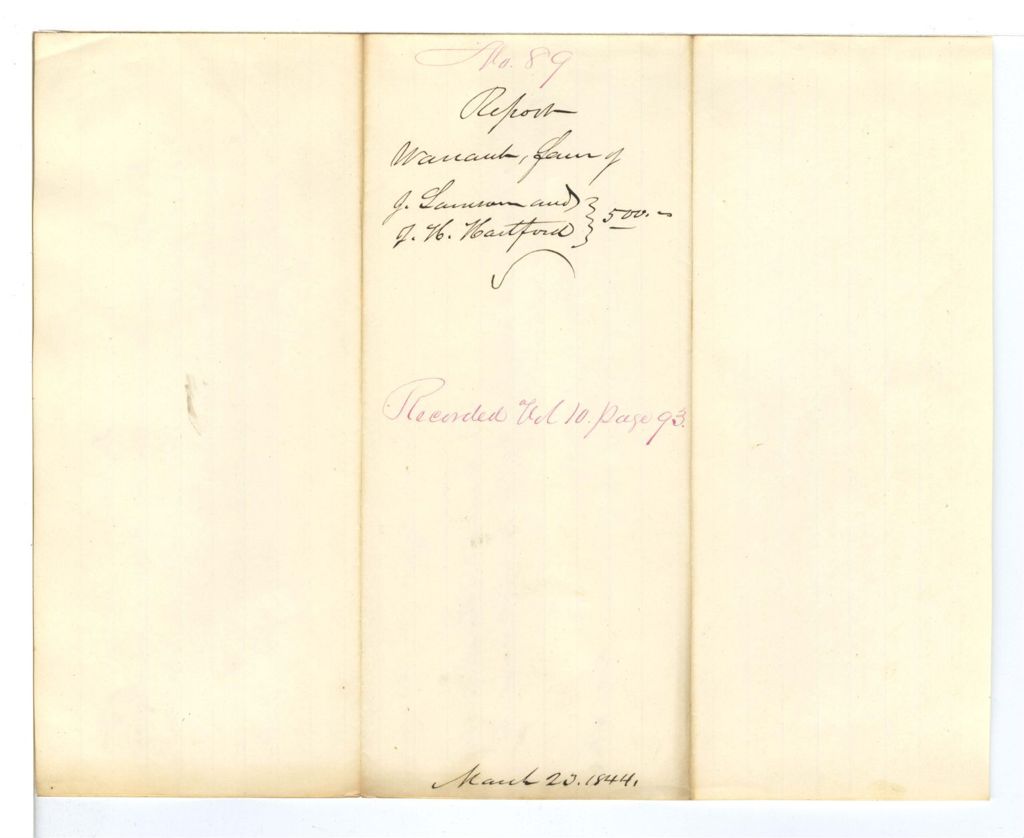 No. 89
Report
Warrant, favr of
J. Lamson and
J. H. Hartford } 500.-
Recorded Vol 10. page 93.
March 23. 1844.